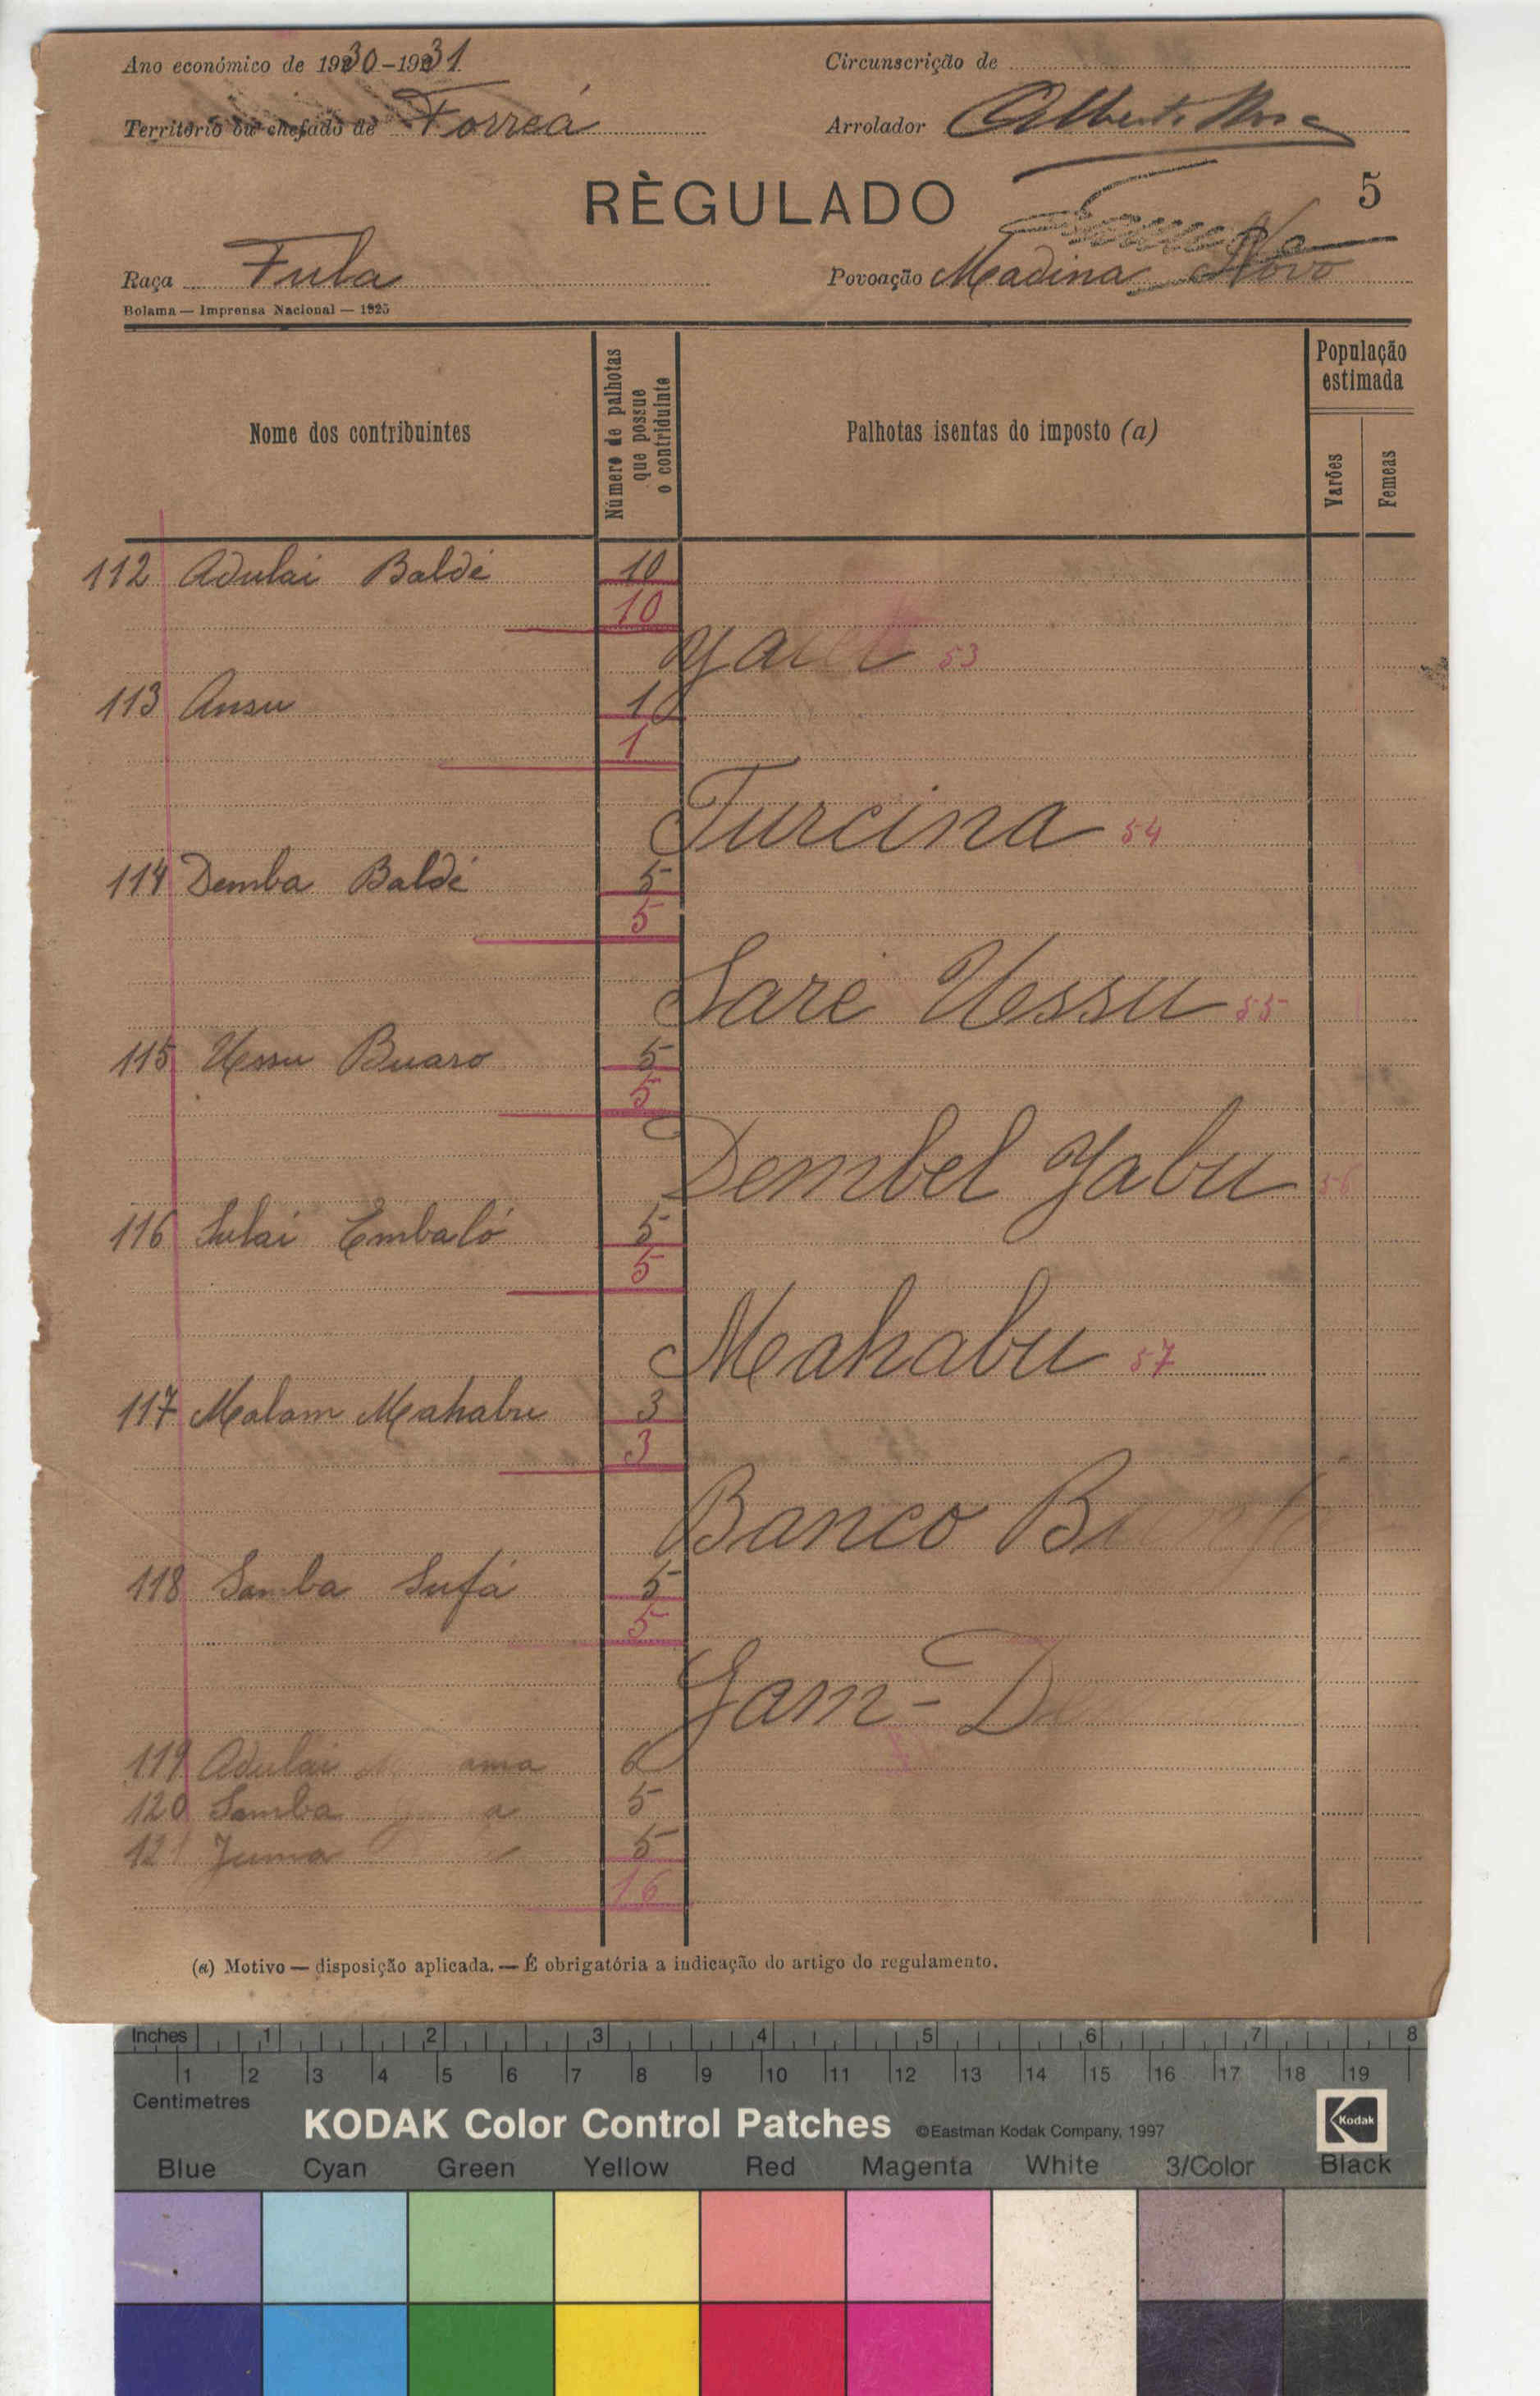 Ano económico de 1930-1931 Circunscrição de
Território ou chefado de Forreá Arrolador Alberto
RÈGULADO 5
Raça Fula Povoação Madina Novo
Bolama — Imprensa Nacional — 1925
Nome dos contribuintes Número de palhotas que possue o contriduinte Palhotas isentas do imposto (a) População estimada Varões Femeas
112 Adulai Baldé 10
10
53
113 Ansu 1
1
Turcina 54
114 Demba Baldé 5
5
Sare Uessu 55
115 Uessu Buaro 5
5
Dembel Yabu 56
116 Sulai Embaló 5
5
Mahabu 57
117 Malam Mahabu 3
3
Banco
118 Samba Sufá 5
5
Gam-
119 Adulai 6
120 Samba 5
121 Juma 5
16
(a) Motivo — disposição aplicada. — É obrigatória a indicação do artigo do regulamento.
Inches 1 2 3 4 5 6 7 8
1 2 3 4 5 6 7 8 9 10 11 12 13 14 15 16 17 18 19
Centimetres
KODAK Color Control Patches ©Eastman Kodak Company, 1997 Kodak
Blue Cyan Green Yellow Red Magenta White 3/Color Black